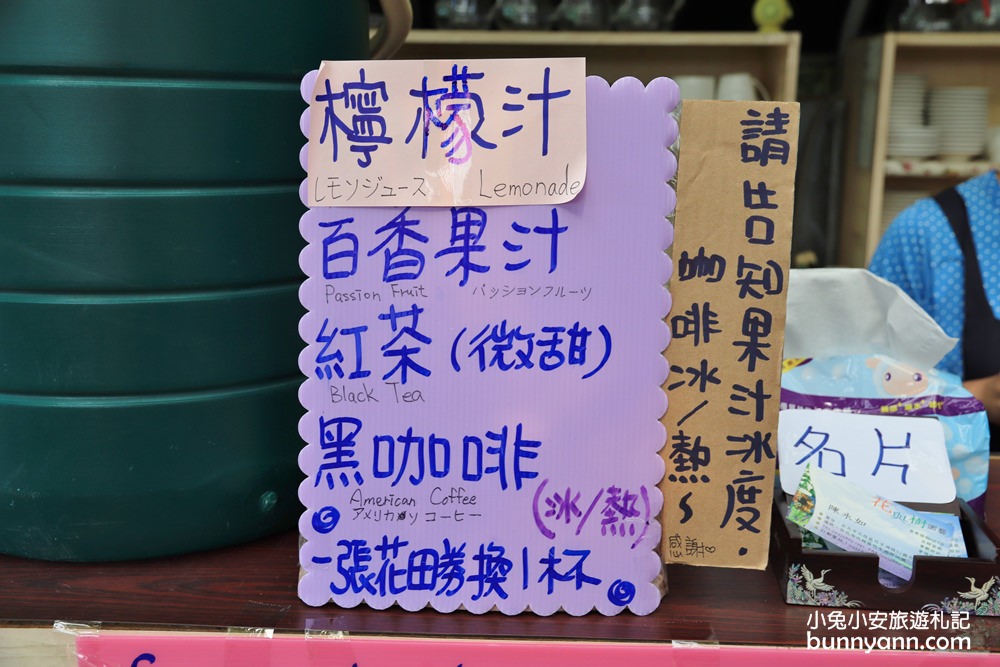 檸檬汁
レモンジュース Lemonade
百香果汁
Passion Fruit パッションフルーツ
紅茶(微甜)
Black Tea
黑咖啡
American Coffee
アメリカソコーヒー
(冰/熱)
一張花田券換1杯
請告知果汁冰度.
咖啡冰/熱~
感謝♡
名片
陳水如
花與樹
小兔小安旅遊札記
bunnyann.com